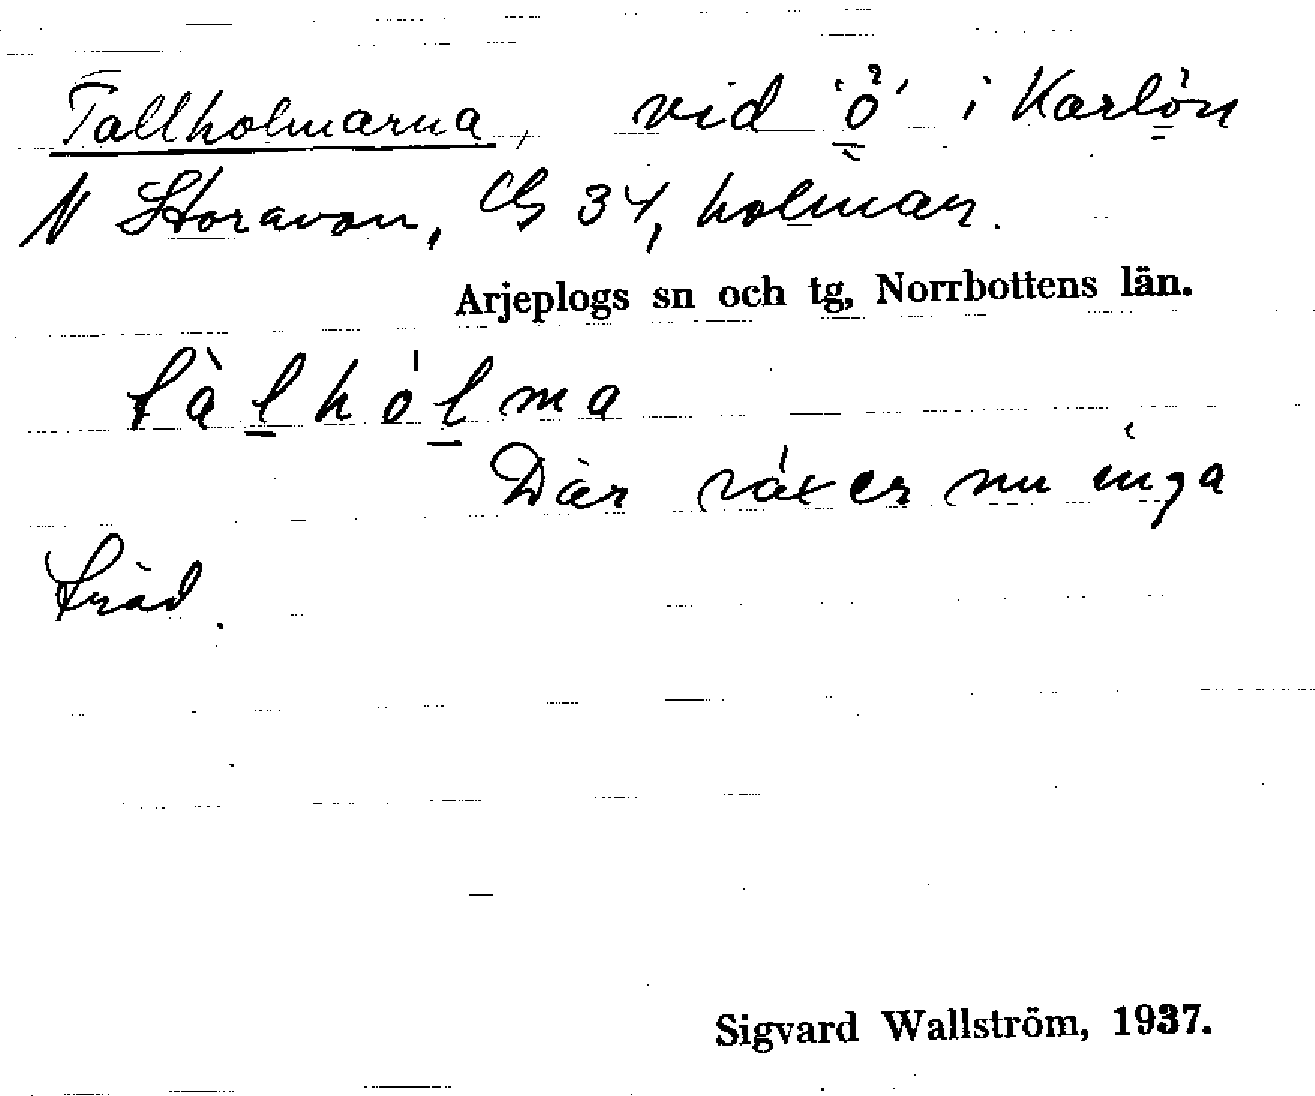 Tallholmarna, vid 'ö' i Karlön
N Storavan, CG 34, holmar.
Arjeplogs sn och tg, Norrbottens län.
tàlhólma
Där växer nu inga
träd.
Sigvard Wallström, 1937.